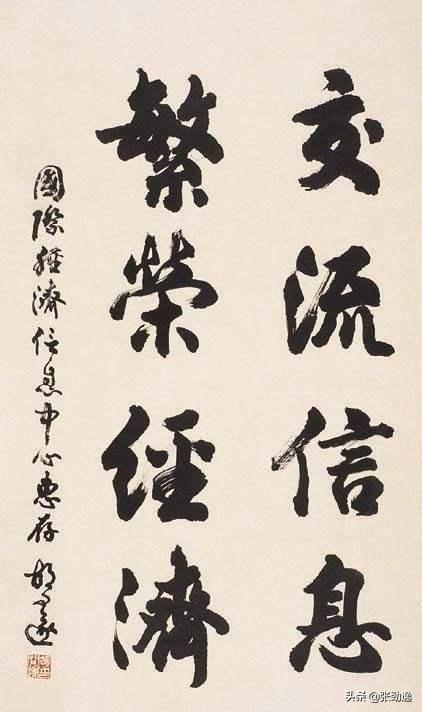 交流信息
繁榮經濟
國際經濟信息中心惠存 胡問遂
头条 @张劲逸